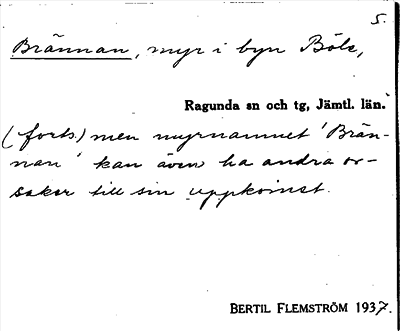 5.
Brännan, myr i byn Böle,
Ragunda sn och tg, Jämtl. län.
(forts.) men myrnamnet 'Brän-
nan' kan även ha andra or-
saker till sin uppkomst.
BERTIL FLEMSTRÖM 1937.